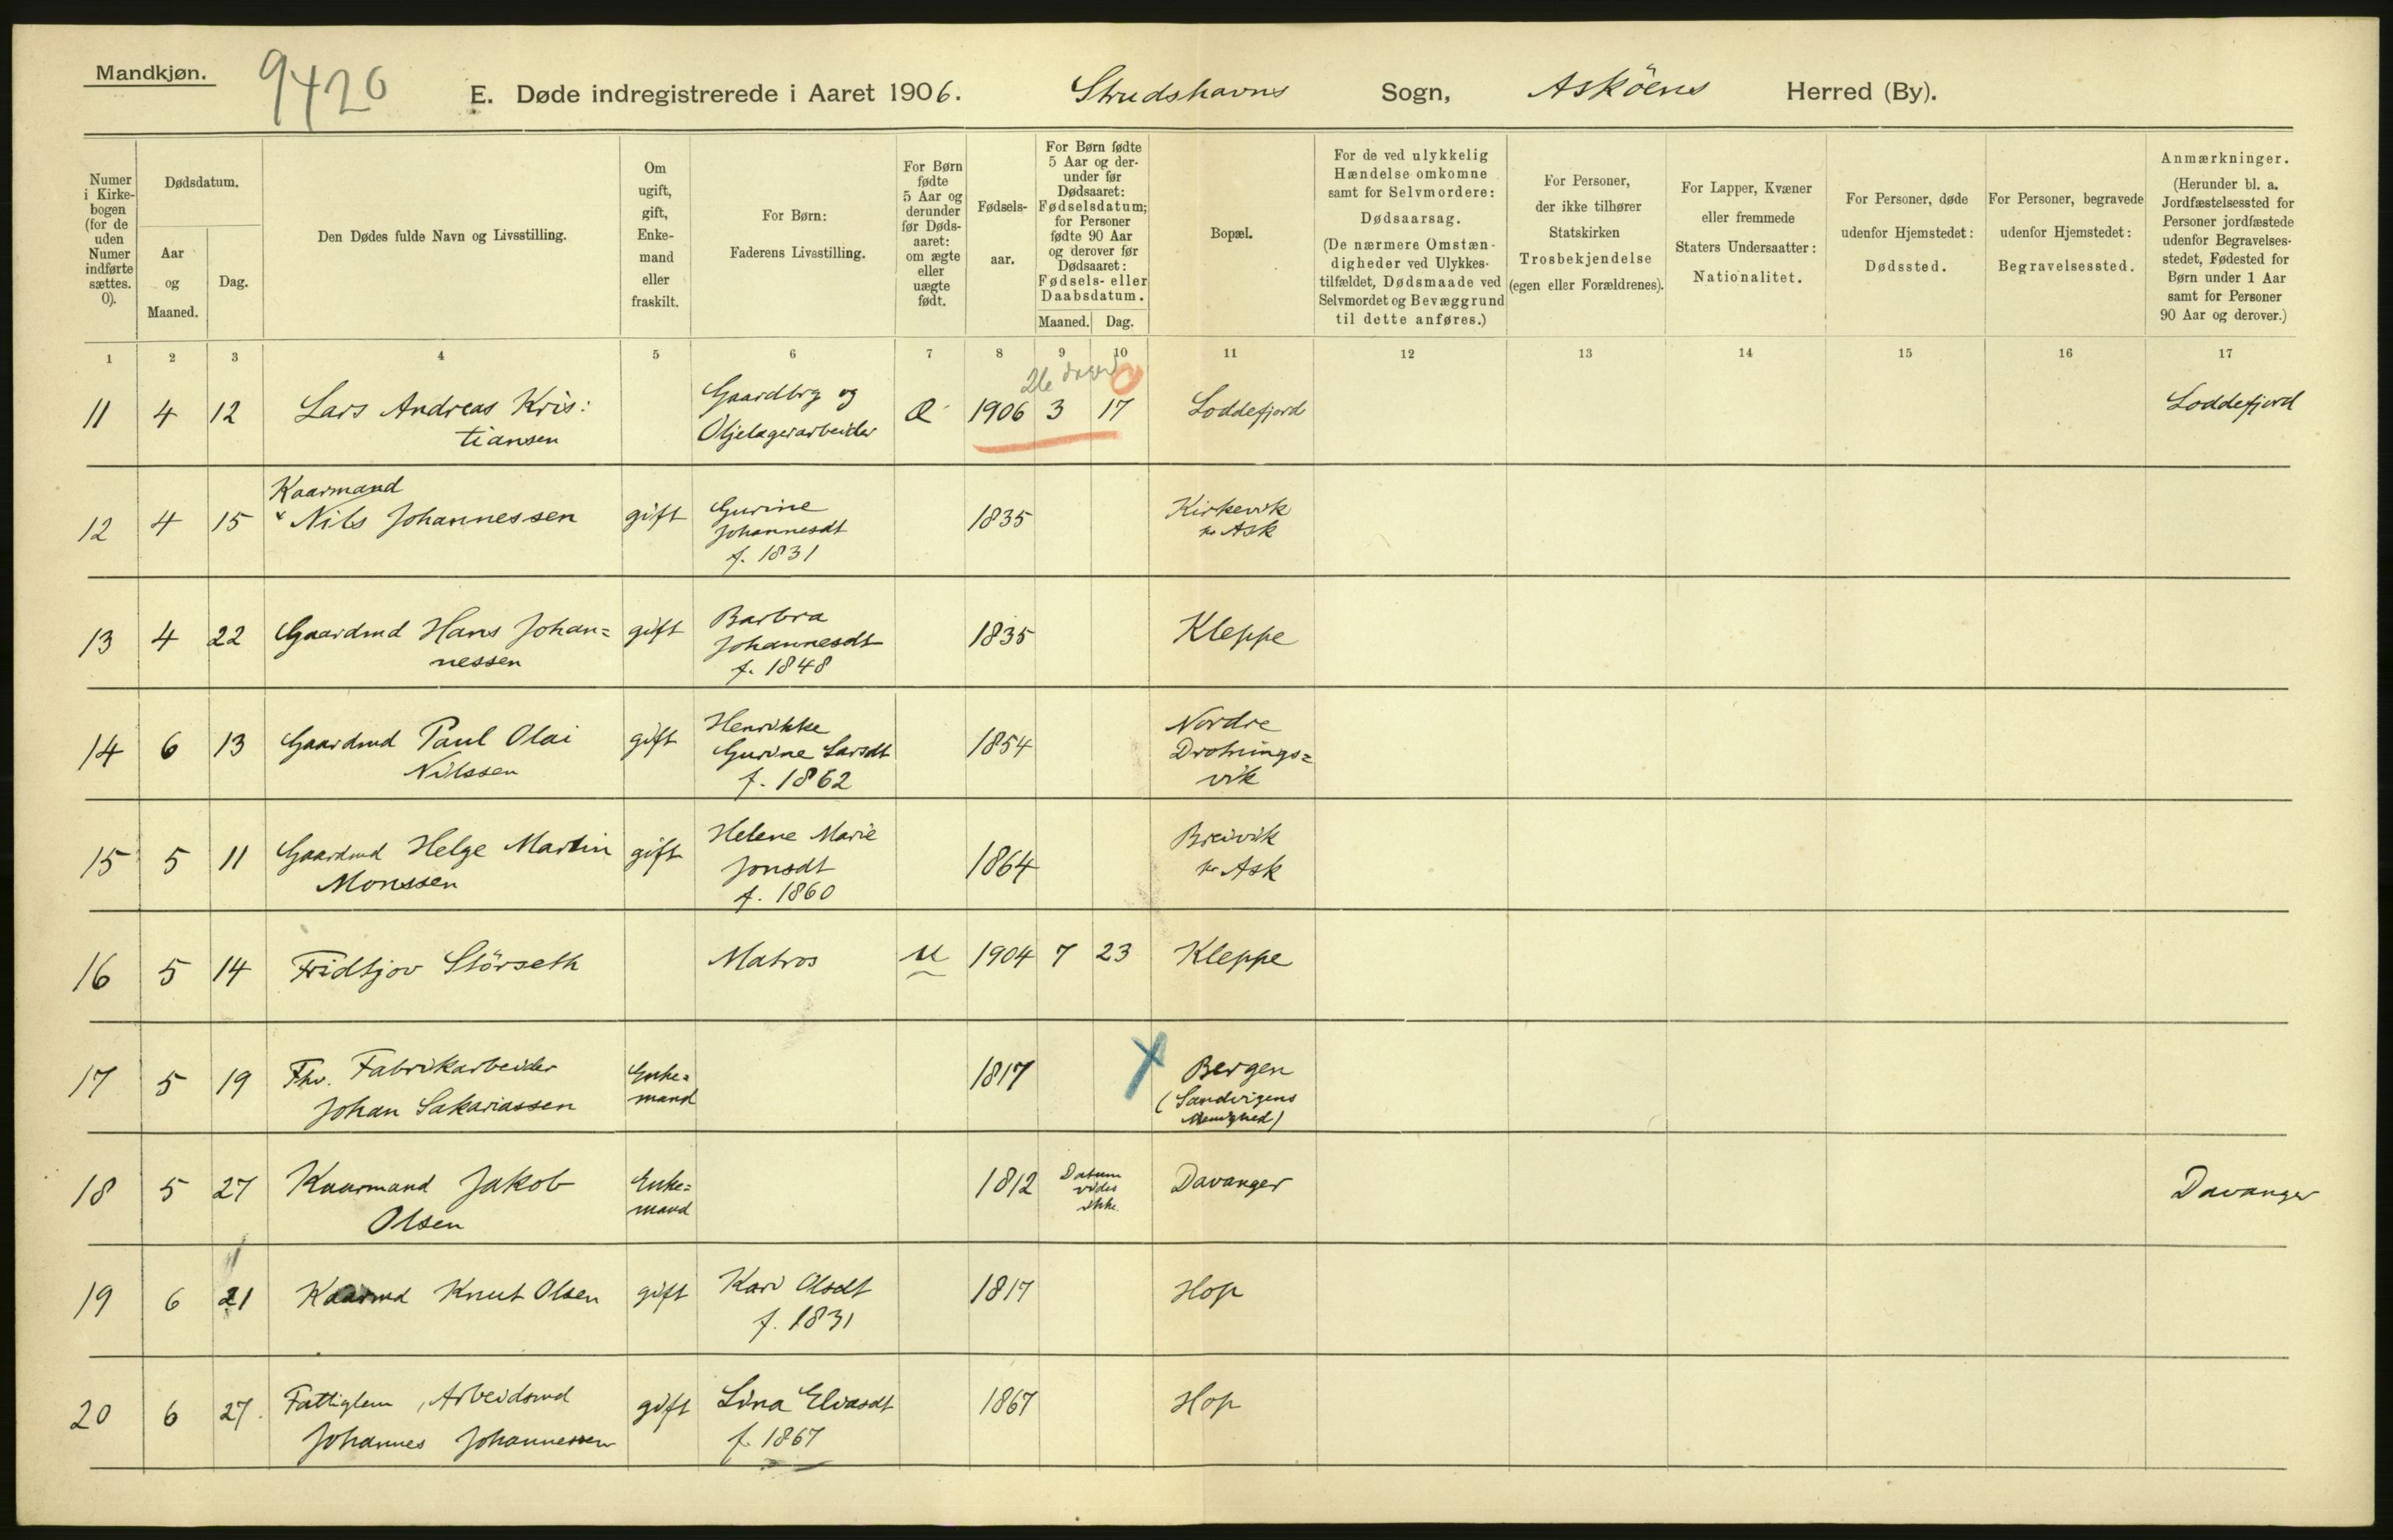 Mandkjøn.
9420
E. Døde indregistrerede i Aaret 1906. Strudshavns Sogn, Asköens Herred (By).
Numer i Kirke-bogen (for de uden Numer indførte sættes. 0).
Dødsdatum.
Aar og Maaned.
Dag.
Den Dødes fulde Navn og Livsstilling.
Om ugift, gift, Enke-mand eller fraskilt.
For Børn: Faderens Livsstilling.
For Børn fødte 5 Aar og derunder før Døds-aaret: om ægte eller uægte født.
Fødsels-aar.
For Børn fødte 5 Aar og der-under før Dødsaaret: Fødselsdatum; for Personer fødte 90 Aar og derover før Dødsaaret: Fødsels- eller Daabsdatum.
Maaned. Dag.
Bopæl.
For de ved ulykkelig Hændelse omkomne samt for Selvmordere: Dødsaarsag. (De nærmere Omstæn-digheder ved Ulykkes-tilfældet, Dødsmaade ved Selvmordet og Bevæggrund til dette anføres.)
For Personer, der ikke tilhører Statskirken Trosbekjendelse (egen eller Forældrenes).
For Lapper, Kvæner eller fremmede Staters Undersaatter: Nationalitet.
For Personer, døde udenfor Hjemstedet: Dødssted.
For Personer, begravede udenfor Hjemstedet: Begravelsessted.
Anmærkninger. (Herunder bl. a. Jordfæstelsessted for Personer jordfæstede udenfor Begravelses-stedet, Fødested for Børn under 1 Aar samt for Personer 90 Aar og derover.)
1 2 3 4 5 6 7 8 9 10 11 12 13 14 15 16 17
26 dager 0
11 4 12 Lars Andreas Kris: Gaardbrg og Æ 1906 3 17 Loddefjord Loddefjord
tiansen Oljelagerarbeider
Kaarmand
12 4 15 * Nils Johannessen gift Gurine 1835 Kirkevik
Johannesdt pr Ask
f. 1831
13 4 22 Gaardmd Hans Johan= gift Barbra 1835 Kleppe
nessen Johannesdt
f. 1848
14 6 13 Gaardmd Paul Olai gift Henrikke 1854 Nordre
Nilssen Gurine Larsdt Drotnings=
f. 1862 vik
15 5 11 Gaardmd Helge Martin gift Helene Marie 1864 Breivik
Monssen Jonsdt pr Ask
f. 1860
16 5 14 Fridtjov Störseth Matros U 1904 7 23 Kleppe
17 5 19 Fhv. Fabrikarbeider Enke= 1817 X Bergen
Johan Sakariassen mand (Sandvigens
Menighed)
18 5 27 Kaarmand Jakob Enke= 1812 Datum Davanger Davanger
Olsen mand vides
ikke
19 6 21 Kaarmd Knut Olsen gift Kari Olsdt 1817 Hop
f. 1831
20 6 27. Fattiglem, Arbeidsmd gift Lina Eliasdt 1867 Hop
Johannes Johannessen f. 1867